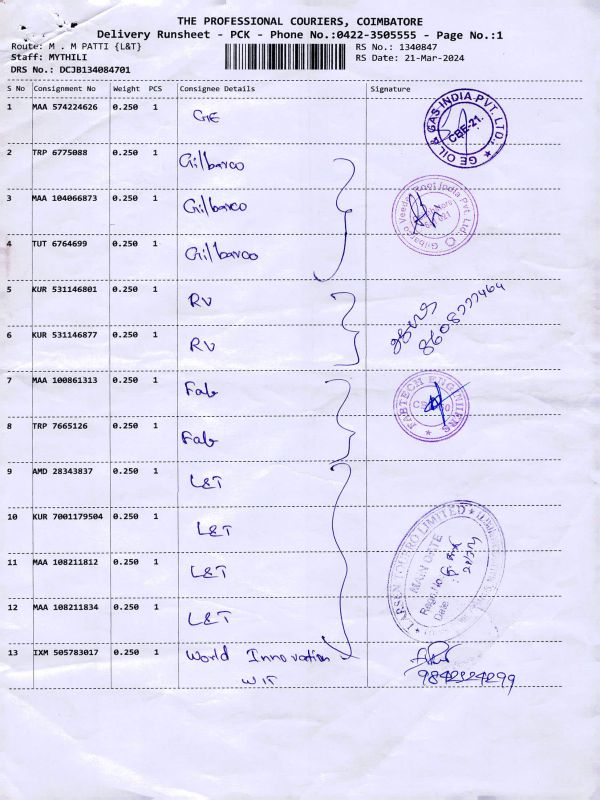 THE PROFESSIONAL COURIERS, COIMBATORE
Delivery Runsheet - PCK - Phone No.:0422-3505555 - Page No.:1
Route: M . M PATTI {L&T}
RS No.: 1340847
Staff: MYTHILI
RS Date: 21-Mar-2024
DRS No.: DCJB134084701
S No Consignment No Weight PCS Consignee Details Signature
1 MAA 574224626 0.250 1 GE
GE OIL & GAS INDIA PVT. LTD. CBE-21.
2 TRP 6775088 0.250 1 Gilbarco
3 MAA 104066873 0.250 1 Gilbarco
Gilbarco Veeder Root India Pvt. Ltd.
4 TUT 6764699 0.250 1 Gilbarco
5 KUR 531146801 0.250 1 RV
6 KUR 531146877 0.250 1 RV
7 MAA 100861313 0.250 1 Fab
FABTECH ENGINEERS
8 TRP 7665126 0.250 1 Fab
9 AMD 28343837 0.250 1 L&T
10 KUR 7001179504 0.250 1 L&T
LARSEN TOUBRO LIMITED
11 MAA 108211812 0.250 1 L&T
Date
12 MAA 108211834 0.250 1 L&T
13 IXM 505783017 0.250 1 World Innovation
WIT